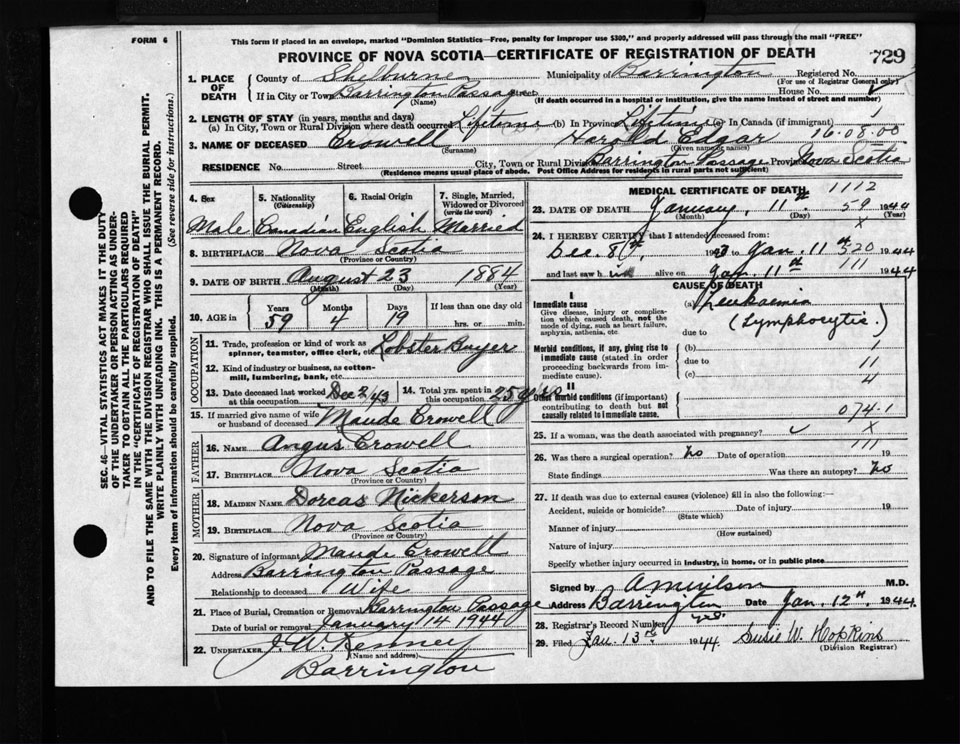 FORM 6
This form if placed in an envelope, marked "Dominion Statistics—Free, penalty for improper use $300," and properly addressed will pass through the mail "FREE"
PROVINCE OF NOVA SCOTIA—CERTIFICATE OF REGISTRATION OF DEATH
729
SEC. 46—VITAL STATISTICS ACT MAKES IT THE DUTY
OF THE UNDERTAKER OR PERSON ACTING AS UNDER-
TAKER TO OBTAIN ALL THE PARTICULARS REQUIRED
IN THE "CERTIFICATE OF REGISTRATION OF DEATH"
AND TO FILE THE SAME WITH THE DIVISION REGISTRAR WHO SHALL ISSUE THE BURIAL PERMIT.
WRITE PLAINLY WITH UNFADING INK. THIS IS A PERMANENT RECORD.
Every item of information should be carefully supplied. (See reverse side for instructions.)
1. PLACE OF DEATH
County of Shelburne Municipality of Barrington Registered No.
(For use of Registrar General only)
If in City or Town Barrington Passage Street House No.
(Name) (If death occurred in a hospital or institution, give the name instead of street and number)
2. LENGTH OF STAY (in years, months and days)
(a) In City, Town or Rural Division where death occurred Lifetime (b) In Province Lifetime (c) In Canada (if immigrant) 1
3. NAME OF DECEASED Crowell Harold Edgar 16.08.00
(Surname) (Given name or names)
RESIDENCE No. Street City, Town or Rural Division Barrington Passage Province Nova Scotia
(Residence means usual place of abode. Post Office Address for residents in rural parts not sufficient)
4. Sex
Male
5. Nationality
(Citizenship)
Canadian
6. Racial Origin
English
7. Single, Married, Widowed or Divorced
(write the word)
Married
8. BIRTHPLACE Nova Scotia
(Province or Country)
9. DATE OF BIRTH August 23 1884
(Month) (Day) (Year)
10. AGE in Years Months Days If less than one day old
59 4 19 hrs. or min.
OCCUPATION
11. Trade, profession or kind of work as spinner, teamster, office clerk, etc. Lobster Buyer
12. Kind of industry or business, as cotton-mill, lumbering, bank, etc.
13. Date deceased last worked at this occupation Dec 2/43
14. Total yrs. spent in this occupation 25 yrs
15. If married give name of wife or husband of deceased Maude Crowell
FATHER
16. NAME Angus Crowell
17. BIRTHPLACE Nova Scotia
(Province or Country)
MOTHER
18. MAIDEN NAME Dorcas Nickerson
19. BIRTHPLACE Nova Scotia
(Province or Country)
20. Signature of informant Maude Crowell
Address Barrington Passage
Relationship to deceased Wife
21. Place of Burial, Cremation or Removal Barrington Passage
Date of burial or removal January 14 1944
22. UNDERTAKER J. W. Kenney
(Name and address)
Barrington
MEDICAL CERTIFICATE OF DEATH
1112
23. DATE OF DEATH January 11th 59 1944
(Month) (Day) (Year)
X
24. I HEREBY CERTIFY that I attended deceased from:
Dec. 8th 1943 to Jan. 11th 520 1944
and last saw h im alive on Jan. 11th 111 1944
CAUSE OF DEATH
I
Immediate cause
Give disease, injury or complication which caused death, not the mode of dying, such as heart failure, asphyxia, asthenia, etc
(a) Leukaemia
(Lymphocytic.)
due to
Morbid conditions, if any, giving rise to immediate cause (stated in order proceeding backwards from immediate cause).
(b) 1
due to 11
(c) 4
II
Other morbid conditions (if important) contributing to death but not causally related to immediate cause.
074.1
25. If a woman, was the death associated with pregnancy? X
111
26. Was there a surgical operation? No Date of operation 19
State findings Was there an autopsy? No
27. If death was due to external causes (violence) fill in also the following:—
Accident, suicide or homicide? Date of injury 19
(State which)
Manner of injury
(How sustained)
Nature of injury
Specify whether injury occurred in industry, in home, or in public place
Signed by A M Wilson M.D.
Address Barrington Date Jan. 12th 1944
28. Registrar's Record Number
29. Filed Jan. 13th 1944 Susie W. Hopkins
(Division Registrar)